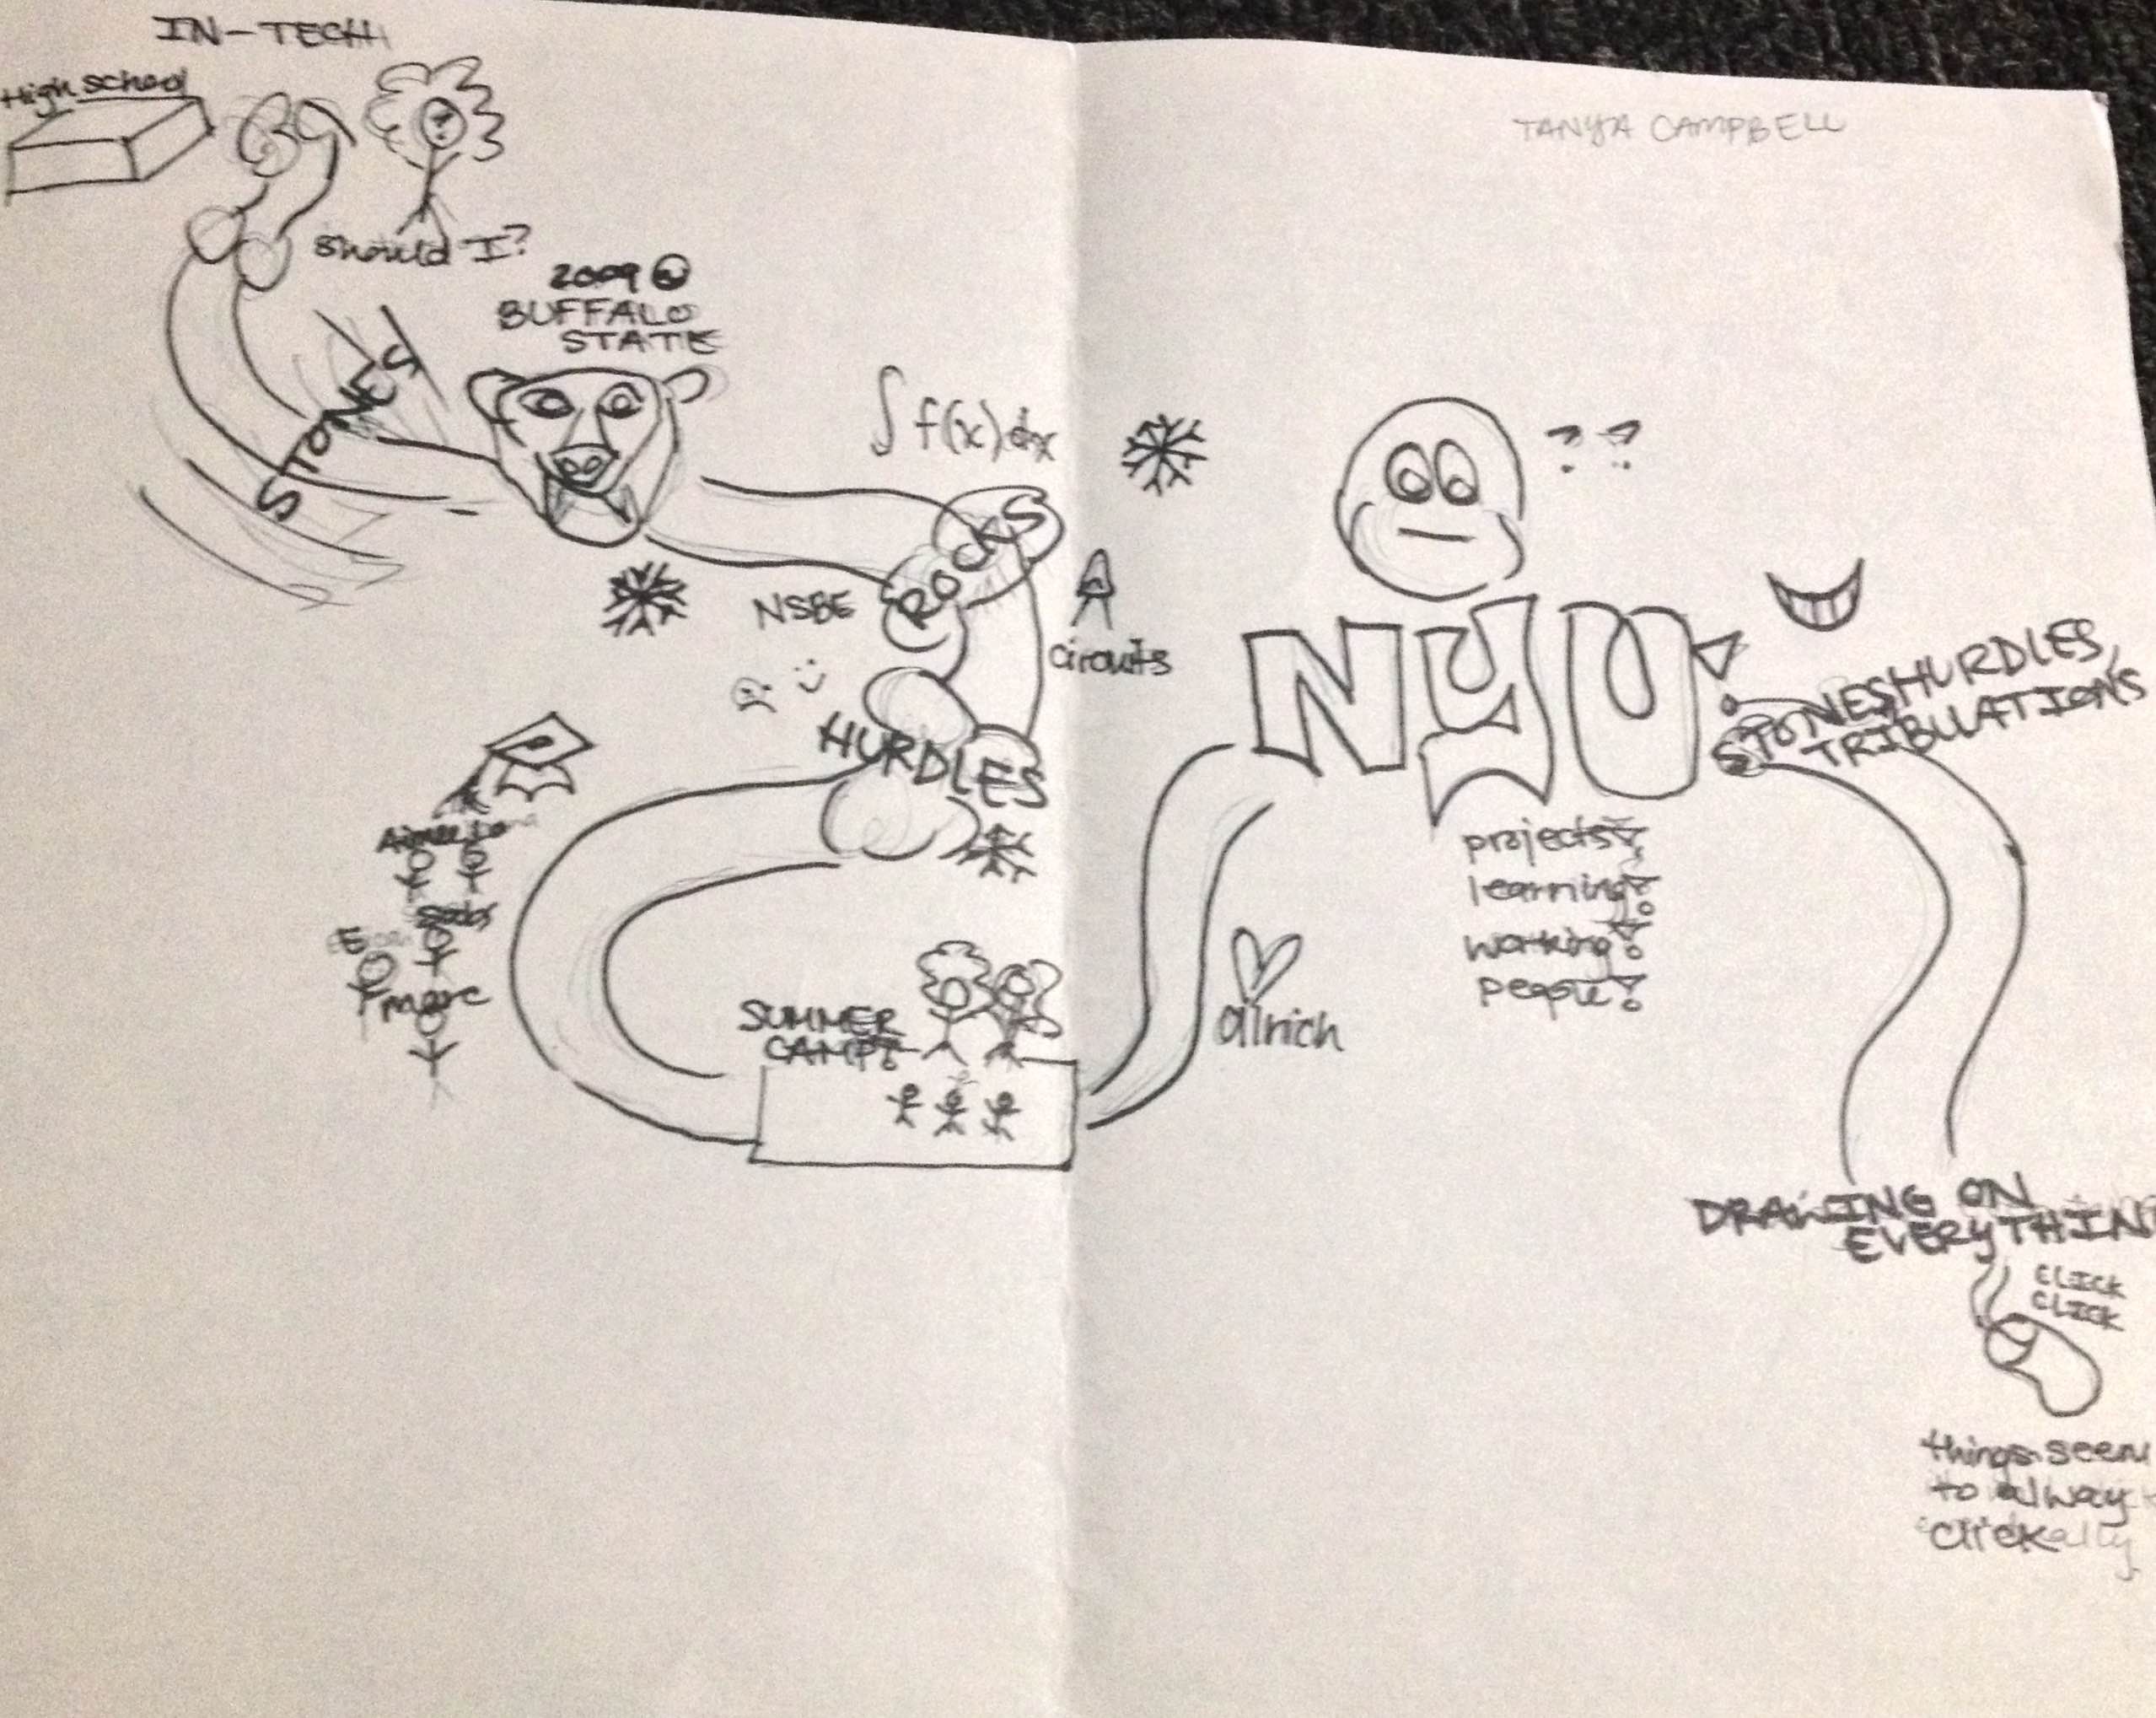 IN-TECH
High school
should I?
2009
BUFFALO
STATE
STONES
∫ f(x) dx
ROCKS
NSBE
circuits
HURDLES
marc
SUMMER
CAMP!
TANYA CAMPBELL
? ?
NYU!
STONES HURDLES,
TRIBULATIONS
projects!
learning!
working!
people!
DRAWING ON
EVERYTHIN
CLICK
CLICK
things seem
to alway
click